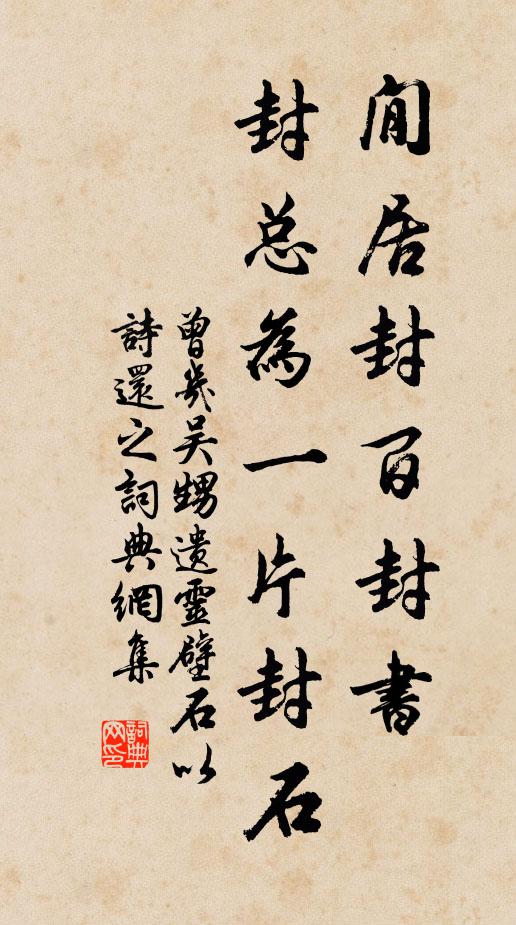 閒居封百封書
封总為一片封石
曾幾吴甥遺靈璧石以
詩還之詞典網集
詞典网印